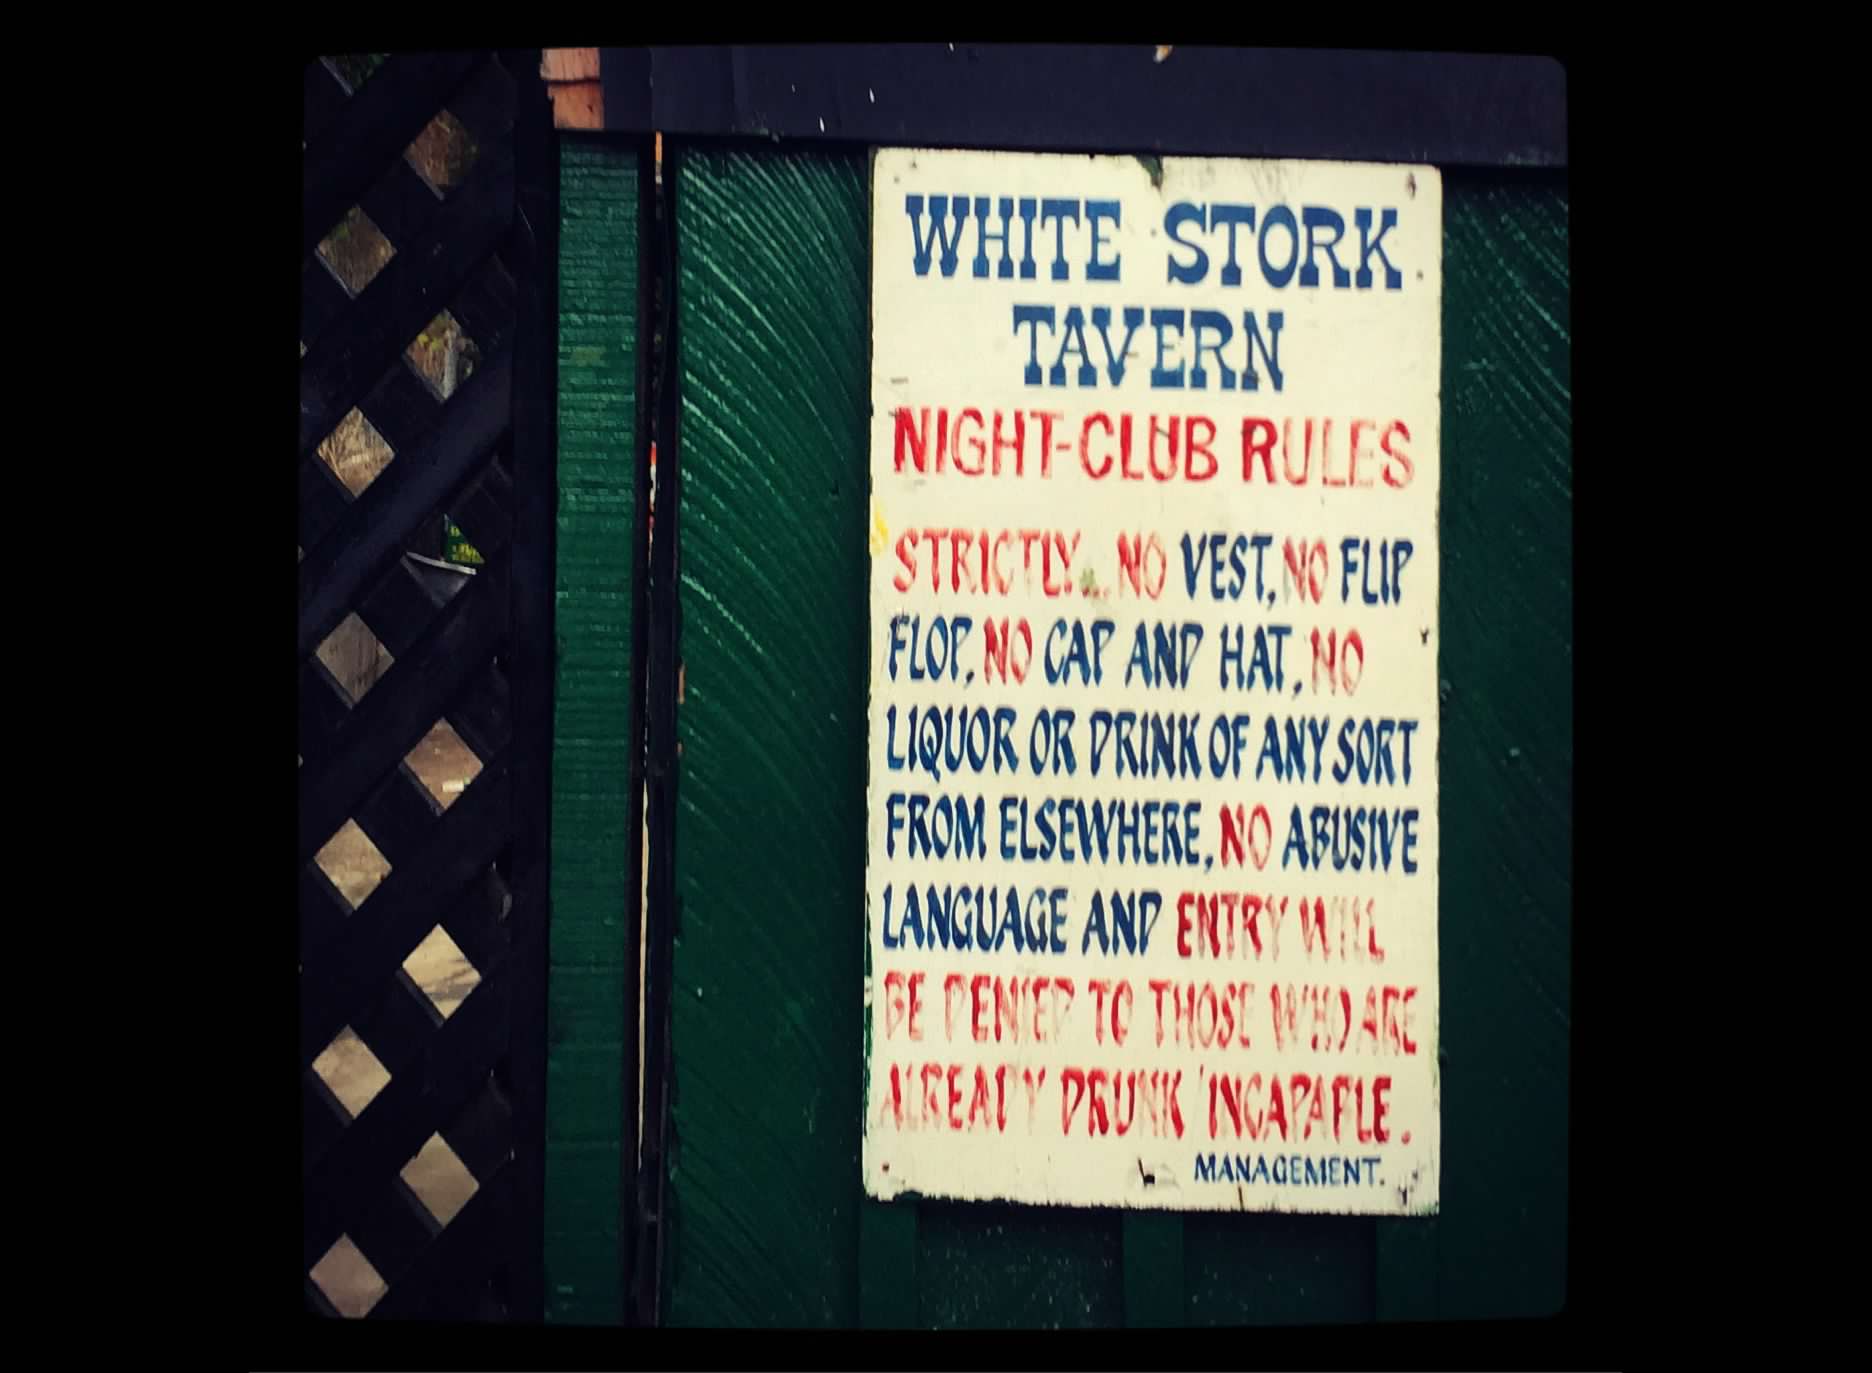 WHITE STORK
TAVERN
NIGHT-CLUB RULES
STRICTLY... NO VEST, NO FLIP
FLOP, NO CAP AND HAT, NO
LIQUOR OR DRINK OF ANY SORT
FROM ELSEWHERE, NO ABUSIVE
LANGUAGE AND ENTRY WILL
BE DENIED TO THOSE WHO ARE
ALREADY DRUNK 'INCAPABLE.
MANAGEMENT.